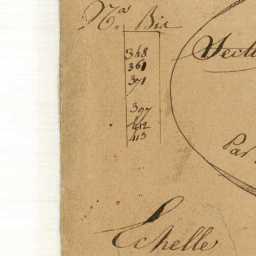 Nª. Bis
368
361
371
397
412
413
Secti
Par
Echelle